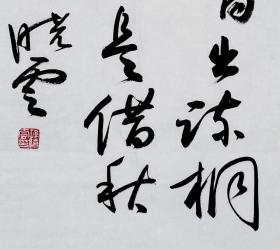 出疏桐
是借秋
晓雲